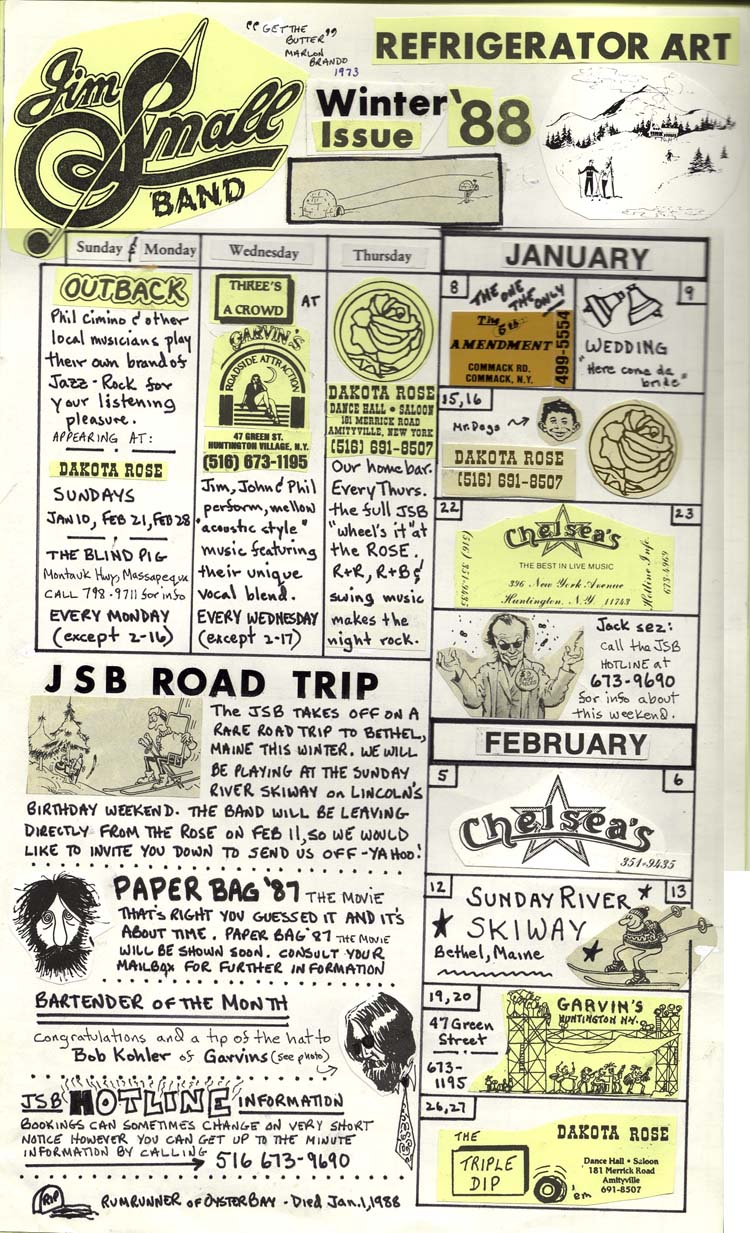 "GET THE
BUTTER"
MARLON
BRANDO
1973
REFRIGERATOR ART
Jim
Small
BAND
Winter '88
Issue
Sunday & Monday
OUTBACK
Phil Cimino & other
local musicians play
their own brand of
Jazz-Rock for
your listening
pleasure.
APPEARING AT:
DAKOTA ROSE
SUNDAYS
JAN 10, FEB 21, FEB 28
THE BLIND PIG
Montauk Hwy, Massapequa
CALL 798-9711 for info
EVERY MONDAY
(except 2-16)
Wednesday
THREE'S
A CROWD
AT
GARVIN'S
ROADSIDE ATTRACTION
47 GREEN ST.
HUNTINGTON VILLAGE, N.Y.
(516) 673-1195
Jim, John & Phil
perform, mellow
"acoustic style"
music featuring
their unique
vocal blend.
EVERY WEDNESDAY
(except 2-17)
Thursday
DAKOTA ROSE
DANCE HALL • SALOON
181 MERRICK ROAD
AMITYVILLE, NEW YORK
(516) 691-8507
Our home bar.
Every Thurs.
the full JSB
"wheel's it" at
the ROSE.
R+R, R+B &
swing music
makes the
night rock.
JANUARY
8
THE ONE
THE ONLY
The 5th
AMENDMENT
COMMACK RD.
COMMACK, N.Y.
499-5554
9
WEDDING
"Here come da
bride"
15,16
Mr. Dogs
DAKOTA ROSE
(516) 691-8507
22
23
Chelsea's
THE BEST IN LIVE MUSIC
396 New York Avenue
Huntington, N.Y. 11743
(516) 351-9435
Hotline Info.
673-4969
Jack sez:
Call the JSB
HOTLINE at
673-9690
for info about
this weekend.
JSB ROAD TRIP
The JSB TAKES OFF ON A
RARE ROAD TRIP TO BETHEL,
MAINE THIS WINTER. WE WILL
BE PLAYING AT THE SUNDAY
RIVER SKIWAY on LINCOLN'S
BIRTHDAY WEEKEND. THE BAND WILL BE LEAVING
DIRECTLY FROM THE ROSE ON FEB 11, SO WE WOULD
LIKE TO INVITE YOU DOWN TO SEND US OFF-YAHOO!
PAPER BAG '87 THE MOVIE
THAT'S RIGHT YOU GUESSED IT AND IT'S
ABOUT TIME. PAPER BAG '87 THE MOVIE
WILL BE SHOWN SOON. CONSULT YOUR
MAILBOX FOR FURTHER INFORMATION
BARTENDER OF THE MONTH
Congratulations and a tip of the hat to
Bob Kohler of Garvins (see photo)
JSB HOTLINE INFORMATION
BOOKINGS CAN SOMETIMES CHANGE ON VERY SHORT
NOTICE HOWEVER YOU CAN GET UP TO THE MINUTE
INFORMATION BY CALLING
516 673-9690
RIP
RUMRUNNER OF OYSTER BAY - Died Jan.1,1988
FEBRUARY
5
6
Chelsea's
351-9435
12
13
SUNDAY RIVER
SKIWAY
Bethel, Maine
19,20
47 Green
Street
673-
1195
GARVIN'S
HUNTINGTON N.Y.
26,27
THE
TRIPLE
DIP
'em
DAKOTA ROSE
Dance Hall • Saloon
181 Merrick Road
Amityville
691-8507